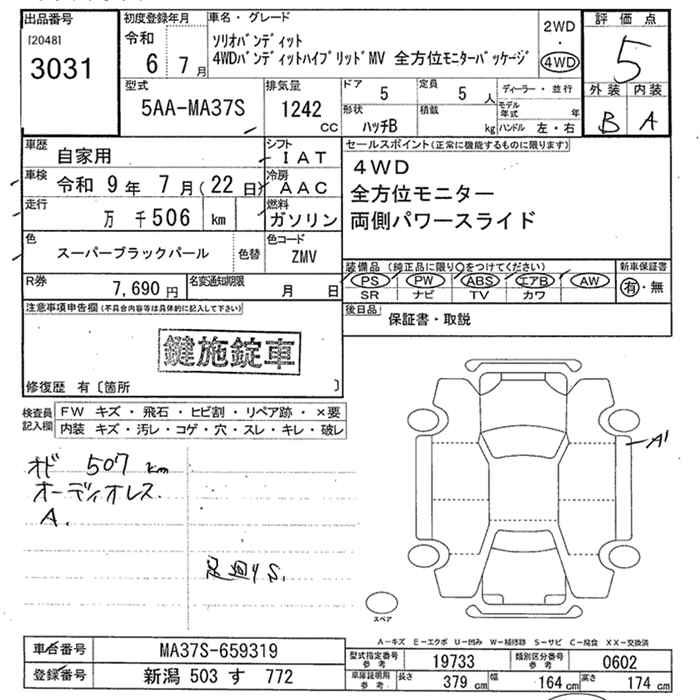 出品番号
[2048]
3031
初度登録年月
令和
6 7月
車名・グレード
ソリオバンディット
4WDバンディットハイブリッドMV 全方位モニターパッケージ
2WD
・
4WD
評価点
5
外装 内装
B A
型式
5AA-MA37S
排気量
1242
CC
ドア
5
定員
5 人
ディーラー・並行
モデル年式 年
形状
ハッチB
積載
kg
ハンドル 左・右
車歴
自家用
シフト
IAT
車検
令和 9年 7月(22日)
冷房
AAC
走行
万 千506 km
燃料
ガソリン
色
スーパーブラックパール
色替
色コード
ZMV
セールスポイント(正常に機能するものに限ります)
4WD
全方位モニター
両側パワースライド
R券
7,690 円
名変通知期限
月 日
装備品 (純正品に限り○をつけてください)
PS PW ABS エアB AW
SR ナビ TV カワ
新車保証書
有・無
注意事項申告欄(不具合内容等は具体的に記入して下さい)
後日品
保証書・取説
鍵施錠車
修復歴 有〔箇所 〕
検査員記入欄
FW キズ・飛石・ヒビ割・リペア跡・×要
内装 キズ・汚レ・コゲ・穴・スレ・キレ・破レ
オド 507 km
オーディオレス
A.
足廻りS.
A1
スペア
A-キズ E-エクボ U-凹み W-補修跡 S-サビ C-腐食 XX-交換済
車台番号
MA37S-659319
登録番号
新潟 503 す 772
型式指定番号
参考
19733
類別区分番号
参考
0602
車庫証明用
参考
長さ
379 cm
幅
164 cm
高さ
174 cm